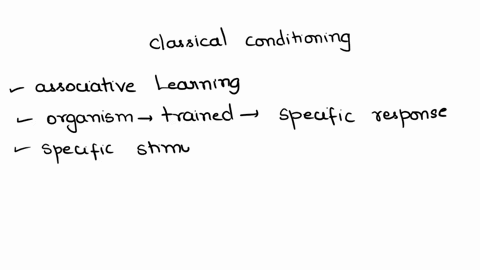 classical conditioning
✓ associative Learning
✓ organism → trained → specific response
✓ specific stimu